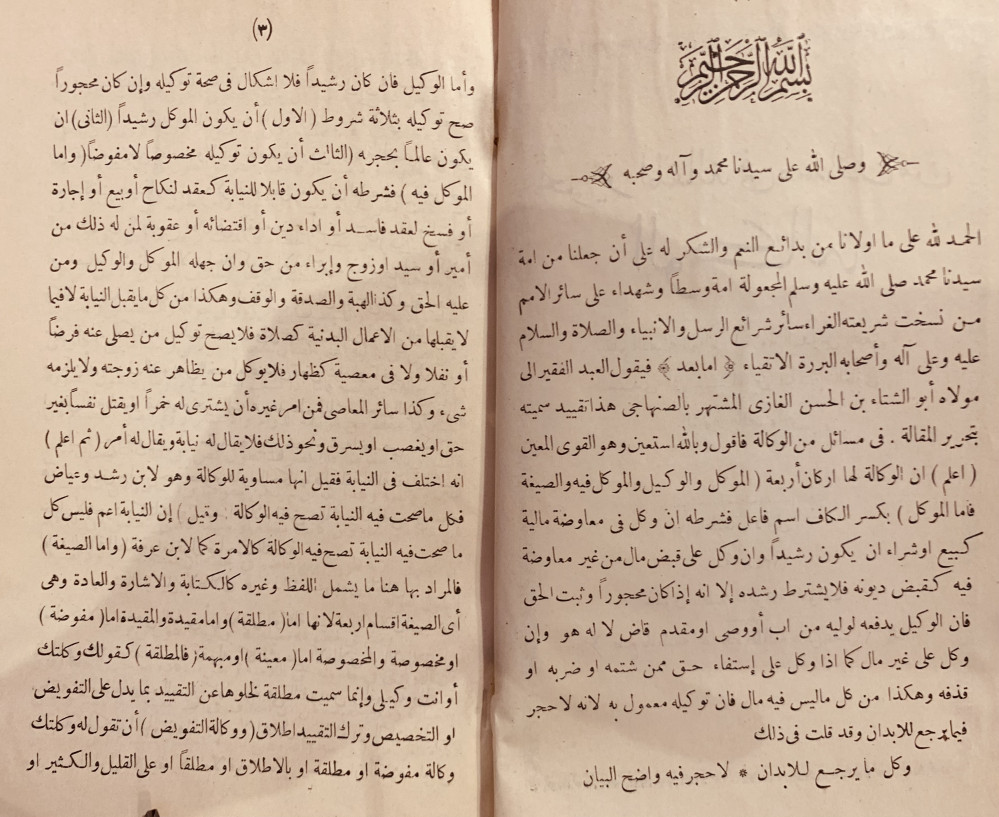 بسم الله الرحمن الرحيم
وصلى الله على سيدنا محمد وآله وصحبه
الحمد لله على ما اولانا من بدائع النعم والشكر له على أن جعلنا من امة
سيدنا محمد صلى الله عليه وسلم المجعولة امة وسطاً وشهداء على سائر الامم
من نسخت شريعته الغراء سائر شرائع الرسل والانبياء والصلاة والسلام
عليه وعلى آله وأصحابه البررة الاتقياء ﴿ امابعد ﴾ فيقول العبد الفقير الى
مولاه أبو الشتاء بن الحسن الغازى المشتهر بالصنهاجى هذا تقييد سميته
بتحرير المقالة . فى مسائل من الوكالة فاقول وبالله استعين وهو القوى المعين
( اعلم ) ان الوكالة لها اركان أربعة ( الموكل والوكيل والموكل فيه والصيغة
فاما الموكل ) بكسر الكاف اسم فاعل فشرطه ان وكل فى معاوضة مالية
كبيع اوشراء ان يكون رشيداً وان وكل على قبض مال من غير معاوضة
فيه كقبض ديونه فلا يشترط رشده إلا انه إذا كان محجوراً وثبت الحق
فان الوكيل يدفعه لوليه من اب أووصى اومقدم قاض لا له هو وإن
وكل على غير مال كما اذا وكل على إستفاء حق ممن شتمه او ضربه او
قذفه وهكذا من كل ماليس فيه مال فان توكيله معمول به لانه لاحجر
فيما يرجع للابدان وقد قلت فى ذلك
وكل ما يرجع للابدان * لاحجر فيه واضح البيان
(٣)
وأما الوكيل فان كان رشيداً فلا اشكال فى صحة توكيله وإن كان محجوراً
صح توكيله بثلاثة شروط ( الاول ) أن يكون الموكل رشيداً ( الثانى ) ان
يكون عالماً بحجره ( الثالث أن يكون توكيله مخصوصاً لامفوضاً ( واما
الموكل فيه ) فشرطه أن يكون قابلا للنيابة كعقد لنكاح أوبيع أو إجارة
أو فسخ لعقد فاسد أو اداء دين أو اقتضائه أو عقوبة لمن له ذلك من
أمير أو سيد اوزوج وإبراء من حق وان جهله الموكل والوكيل ومن
عليه الحق وكذا الهبة والصدقة والوقف وهكذا من كل مايقبل النيابة لافيما
لايقبلها من الاعمال البدنية كصلاة فلا يصح توكيل من يصلى عنه فرضاً
أو نفلا ولا فى معصية كظهار فلا يوكل من يظاهر عنه زوجته ولا يلزمه
شىء وكذا سائر المعاصى فمن امر غيره أن يشترى له خمراً اويقتل نفساً بغير
حق او يغصب اويسرق ونحو ذلك فلا يقال له نيابة ويقال له أمر ( ثم اعلم )
انه اختلف فى النيابة فقيل انها مساوية للوكالة وهو لابن رشد وعياض
فكل ماصحت فيه النيابة تصح فيه الوكالة وقيل ) إن النيابة اعم فليس كل
ما صحت فيه النيابة تصح فيه الوكالة كالامرة كما لابن عرفة ( واما الصيغة )
فالمراد بها هنا ما يشمل اللفظ وغيره كالكتابة والاشارة والعادة وهى
أى الصيغة اقسام اربعة لانها اما ( مطلقة ) واما مقيدة والمقيدة اما ( مفوضة )
او مخصوصة والمخصوصة اما ( معينة ) او مبهمة ( فالمطلقة ) كقولك وكلتك
أو انت وكيلى وإنما سميت مطلقة لخلوها عن التقييد بما يدل على التفويض
او التخصيص وترك التقييد اطلاق ( ووكالة التفويض ) أن تقول له وكلتك
وكالة مفوضة او مطلقة او بالاطلاق او مطلقاً او على القليل والكثير او